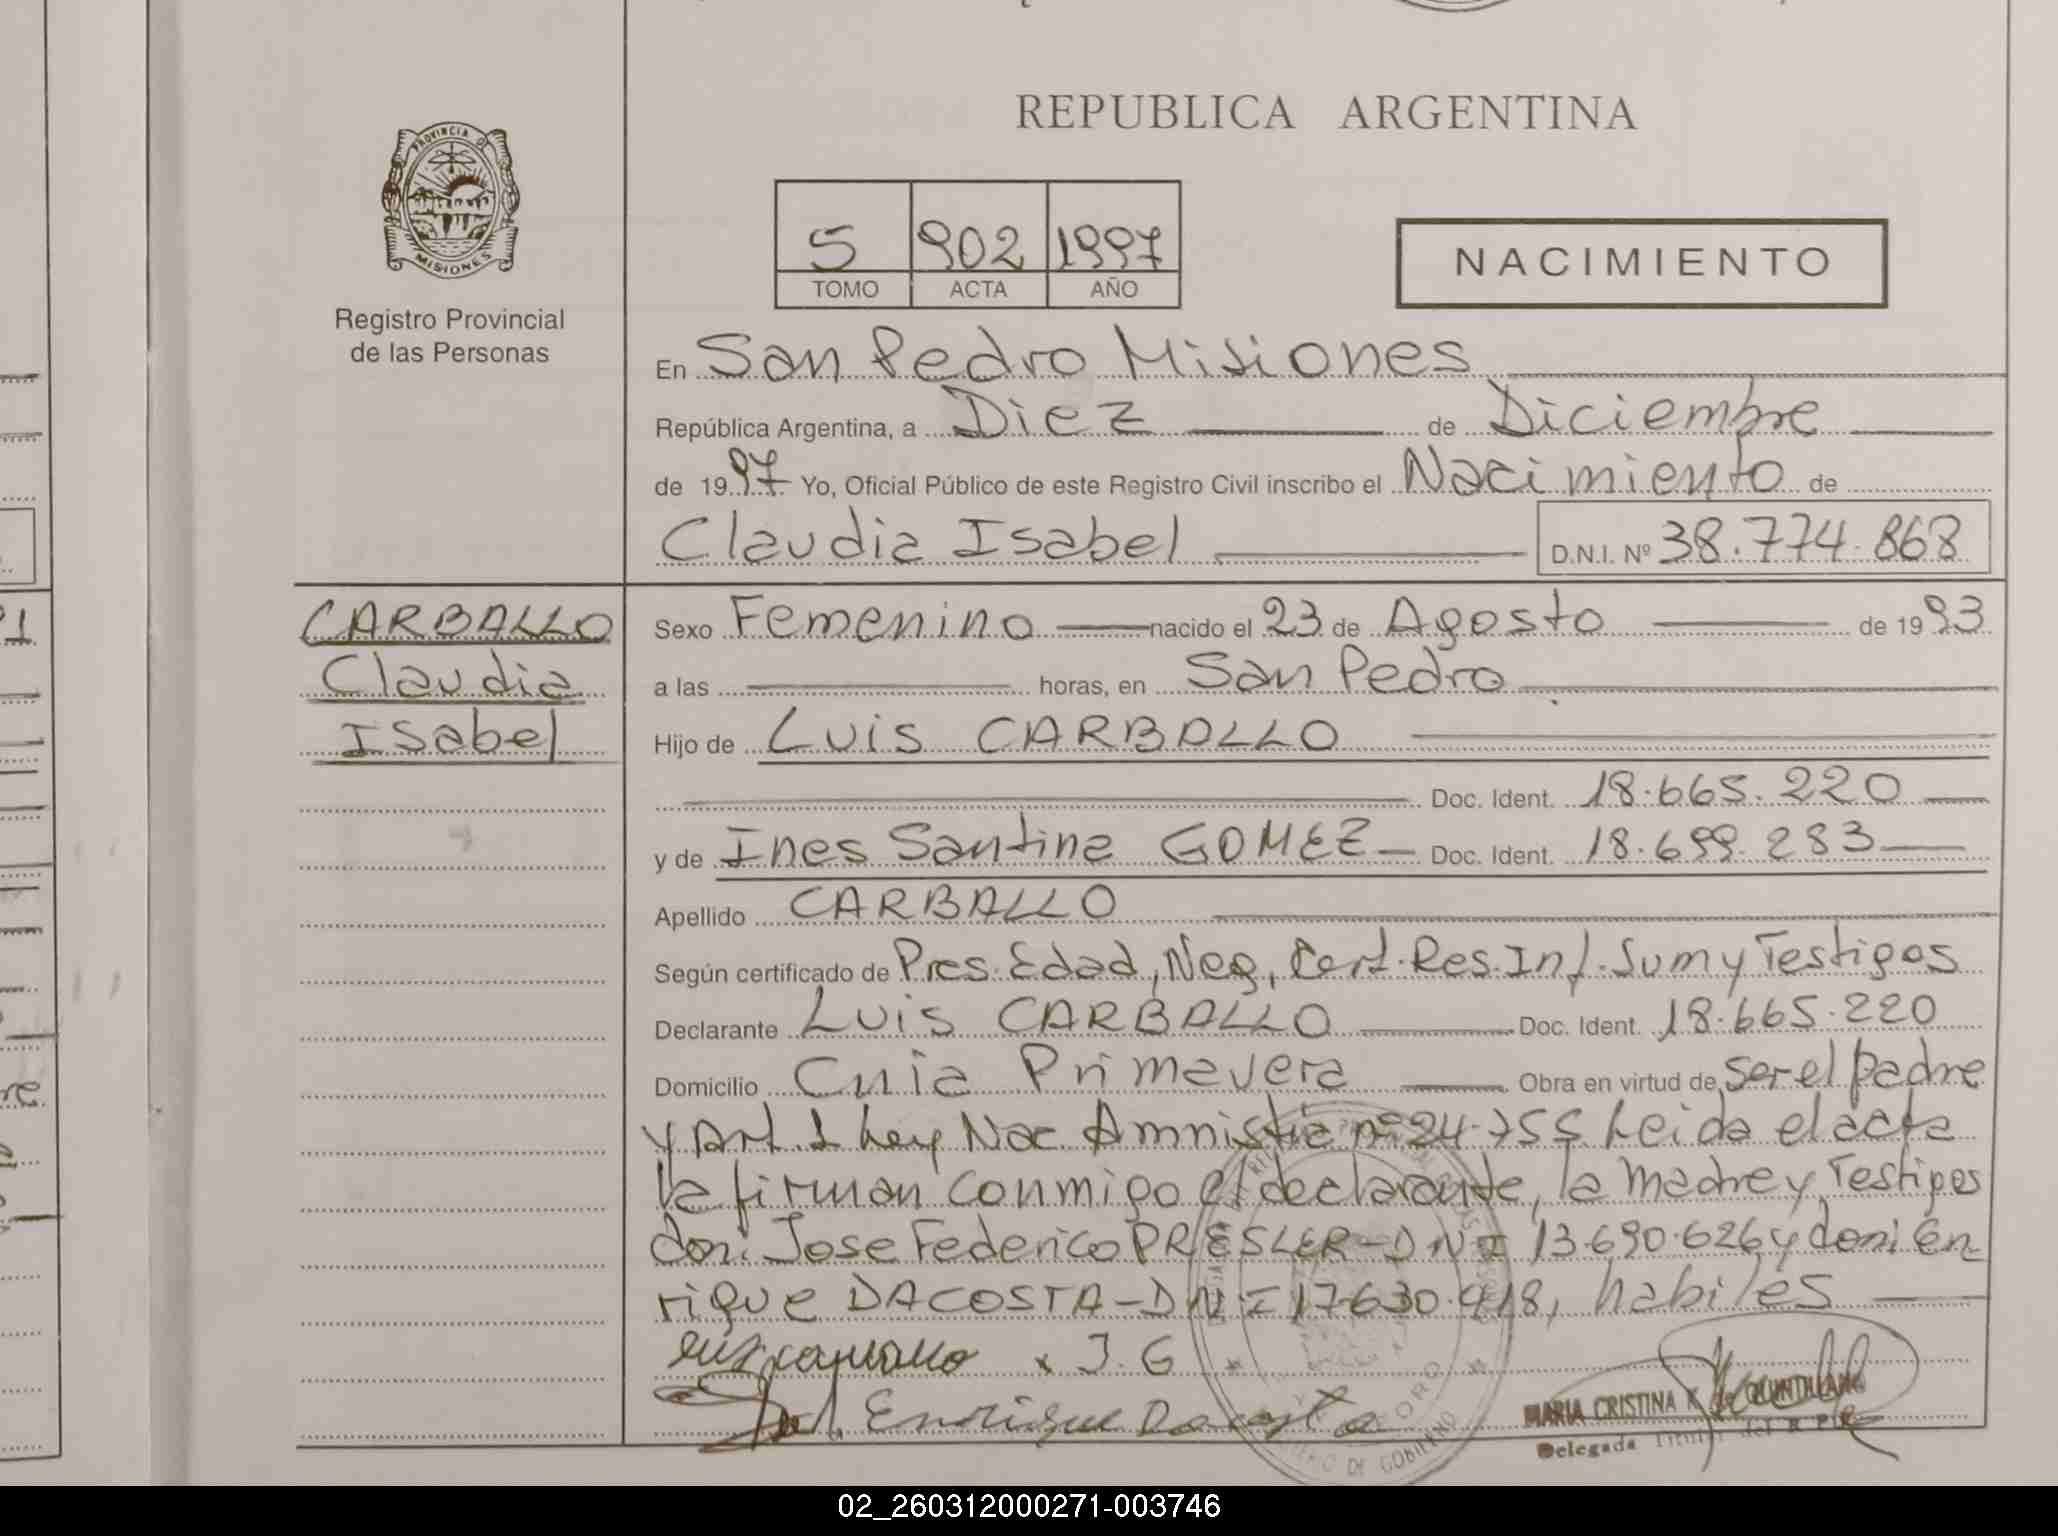 REPUBLICA ARGENTINA
PROVINCIA DE
MISIONES
Registro Provincial
de las Personas
5 902 1997
TOMO ACTA AÑO
NACIMIENTO
En San Pedro Misiones
República Argentina, a Diez de Diciembre
de 1997 Yo, Oficial Público de este Registro Civil inscribo el Nacimiento de
Claudia Isabel D.N.I. Nº 38.774.868
CARBALLO
Claudia
Isabel
Sexo Femenino nacido el 23 de Agosto de 1993
a las horas, en San Pedro
Hijo de Luis CARBALLO
Doc. Ident. 18.665.220
y de Ines Santina GOMEZ Doc. Ident. 18.699.283
Apellido CARBALLO
Según certificado de Pres. Edad, Neg, Cert. Res. Inf. Sum y Testigos
Declarante Luis CARBALLO Doc. Ident. 18.665.220
Domicilio Cnia Primavera Obra en virtud de ser el padre
y Art. 1 Ley Nac Amnistia nº 24.755 Leida el acta
la firman conmigo el declarante, la madre y Testigos
don: Jose Federico PRESLER - DNI 13.690.626 y don: En
rique DACOSTA - DNI 17630.418, habiles
x J. G
Enrique Dacosta
MARIA CRISTINA K de QUINTANA
Delegada Titular del R P P
02_260312000271-003746